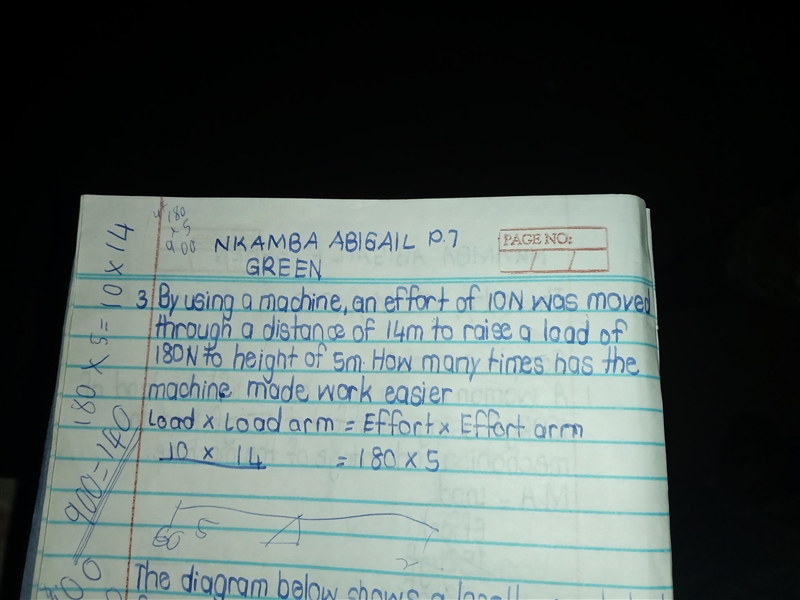 180
x 5
900
NKAMBA ABIGAIL P.7
GREEN
PAGE NO:
3 By using a machine, an effort of 10N was moved
through a distance of 14m to raise a load of
180N to height of 5m. How many times has the
machine made work easier
Load x Load arm = Effort x Effort arm
10 x 14 = 180 x 5
5
The diagram below shows a
180 x 5 = 10 x 14
900 = 140